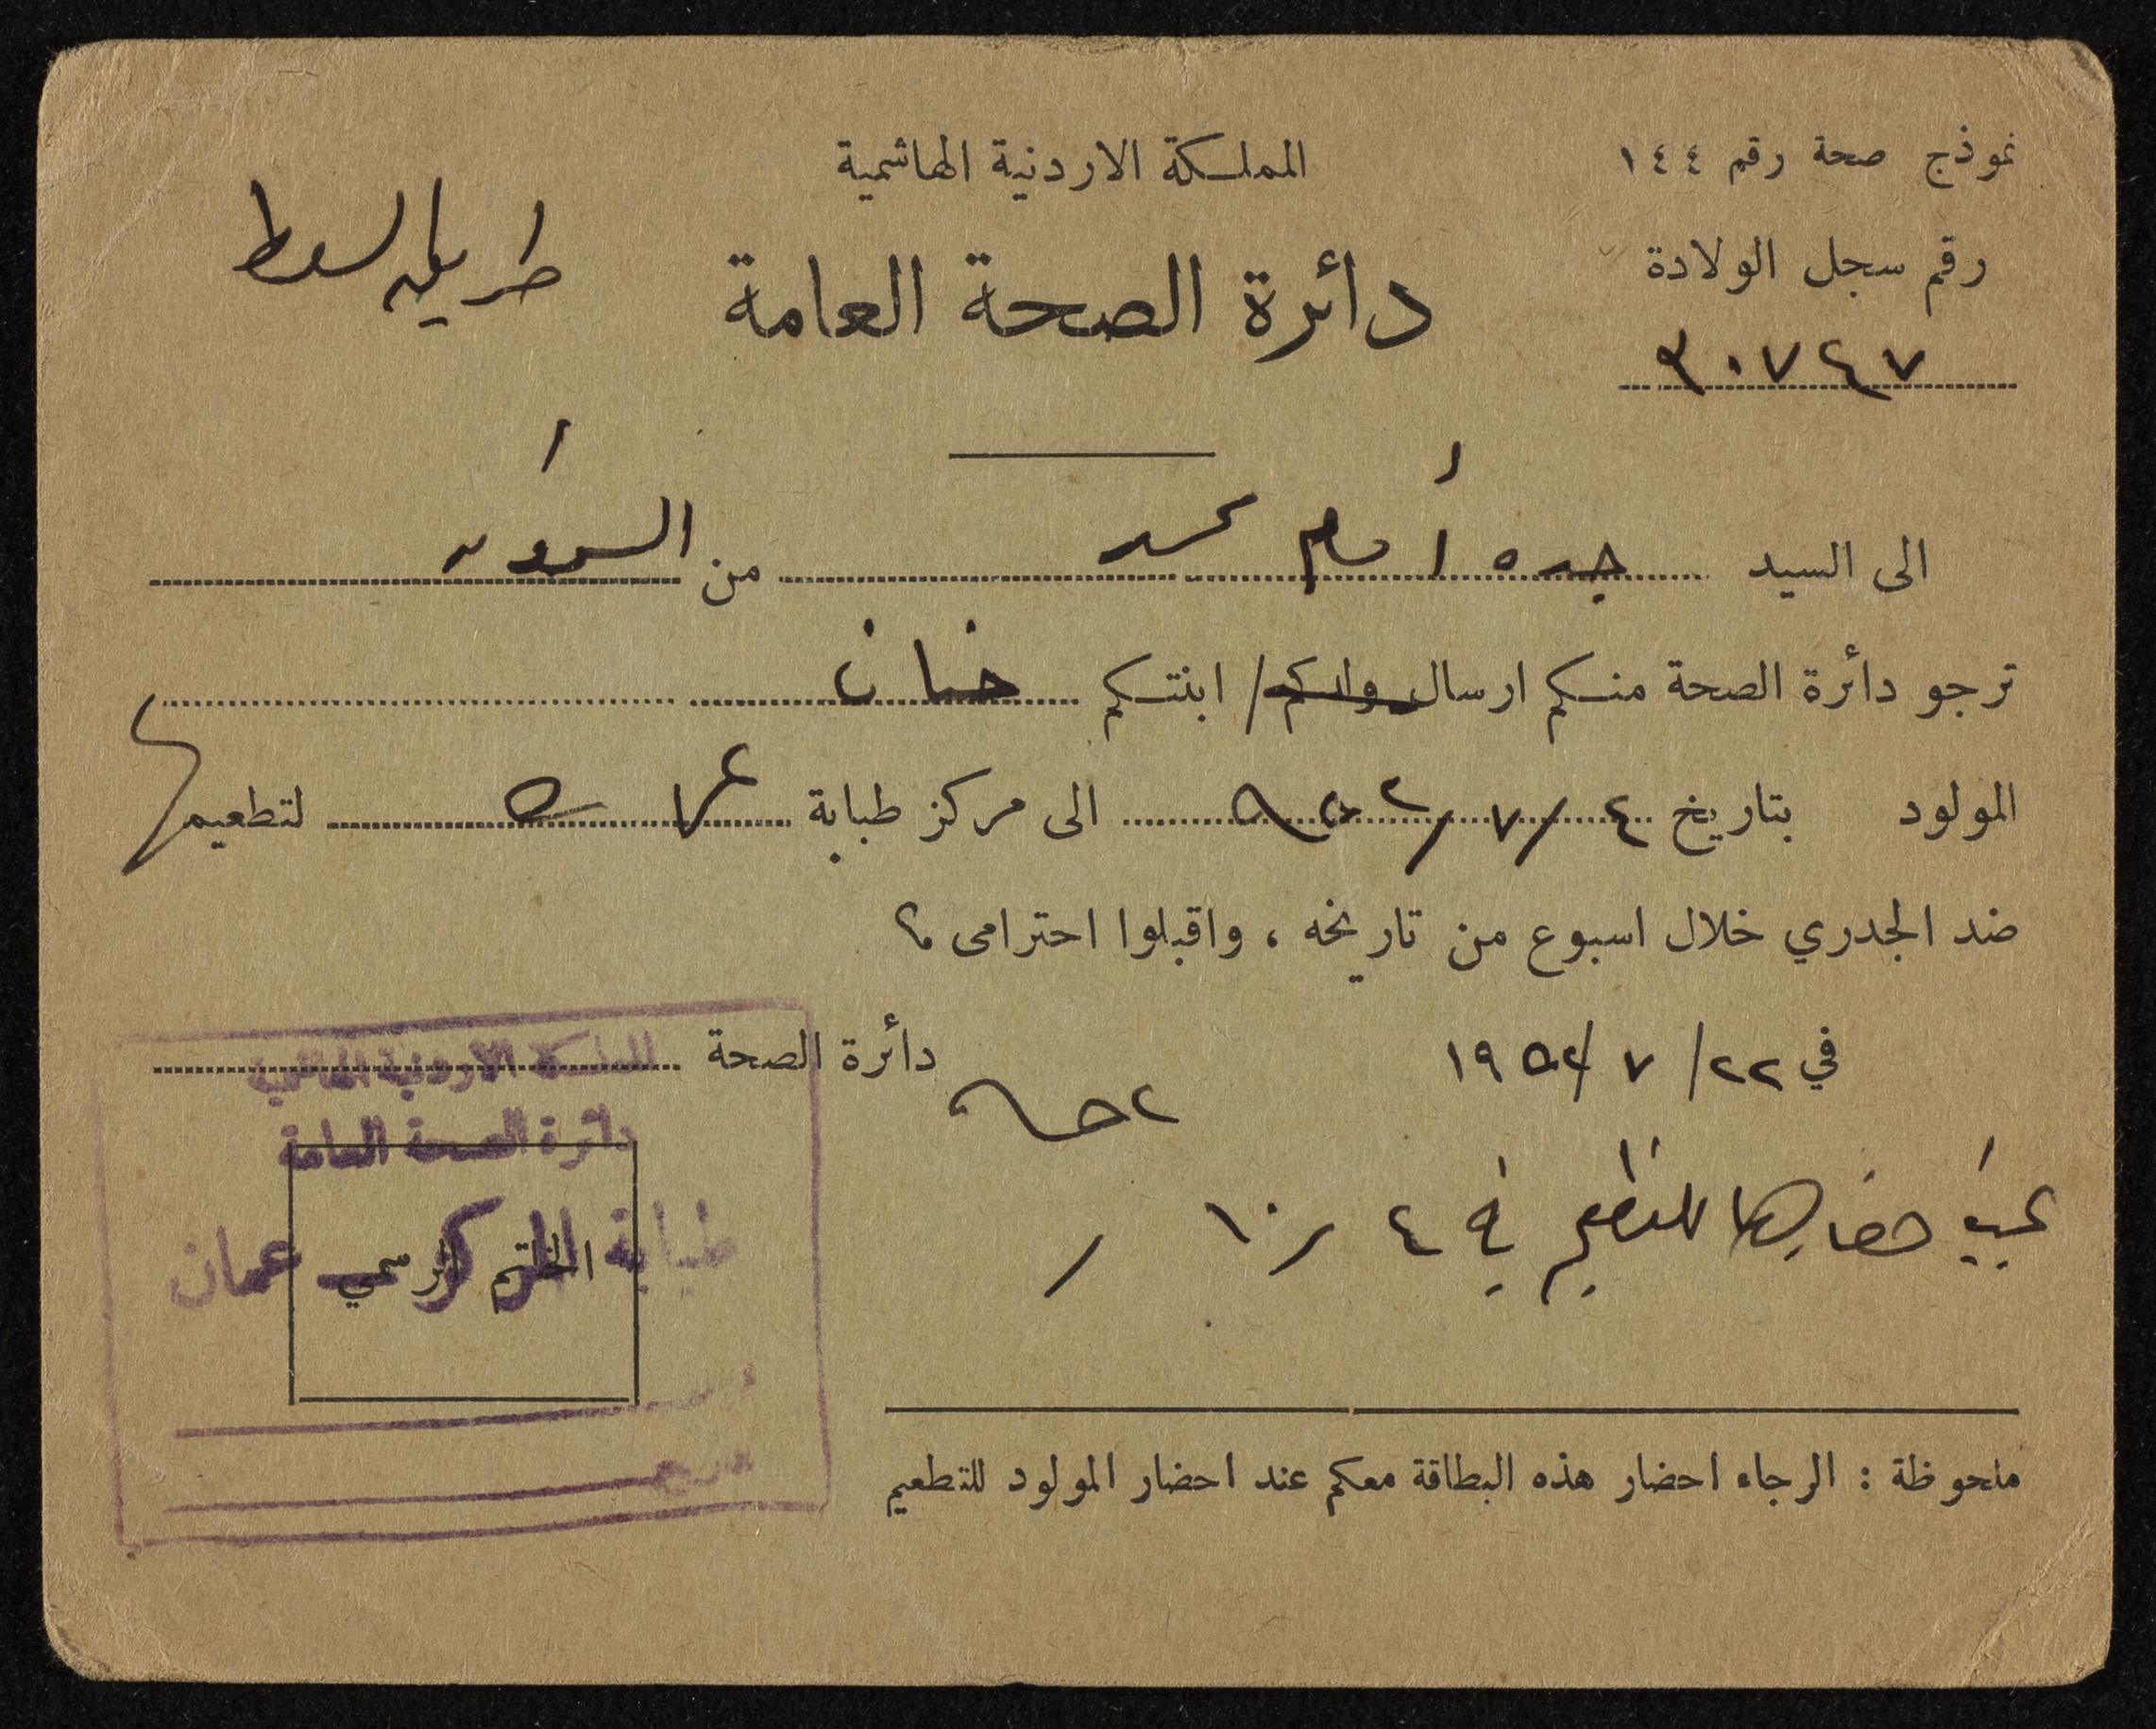 نموذج صحة رقم ١٤٤
المملكة الاردنية الهاشمية
رقم سجل الولادة
طريق السلط
دائرة الصحة العامة
٣٠٧٤٧
الى السيد عبده محمد من
ترجو دائرة الصحة منكم ارسال ولدكم / ابنتكم حنان
المولود بتاريخ ٤/٧/٩٥٢ الى مركز طبابة عمان لتطعيمها
ضد الجدري خلال اسبوع من تاريخه ، واقبلوا احترامى ؟
في ٢٢/ ٧ /١٩٥٢
دائرة الصحة
المملكة الاردنية الهاشمية
دائرة الصحة العامة
يجب احضارها للتطعيم في ٤ / ١٠ /
طبابة المركز عمان
الختم الرسمي
ملحوظة : الرجاء احضار هذه البطاقة معكم عند احضار المولود للتطعيم